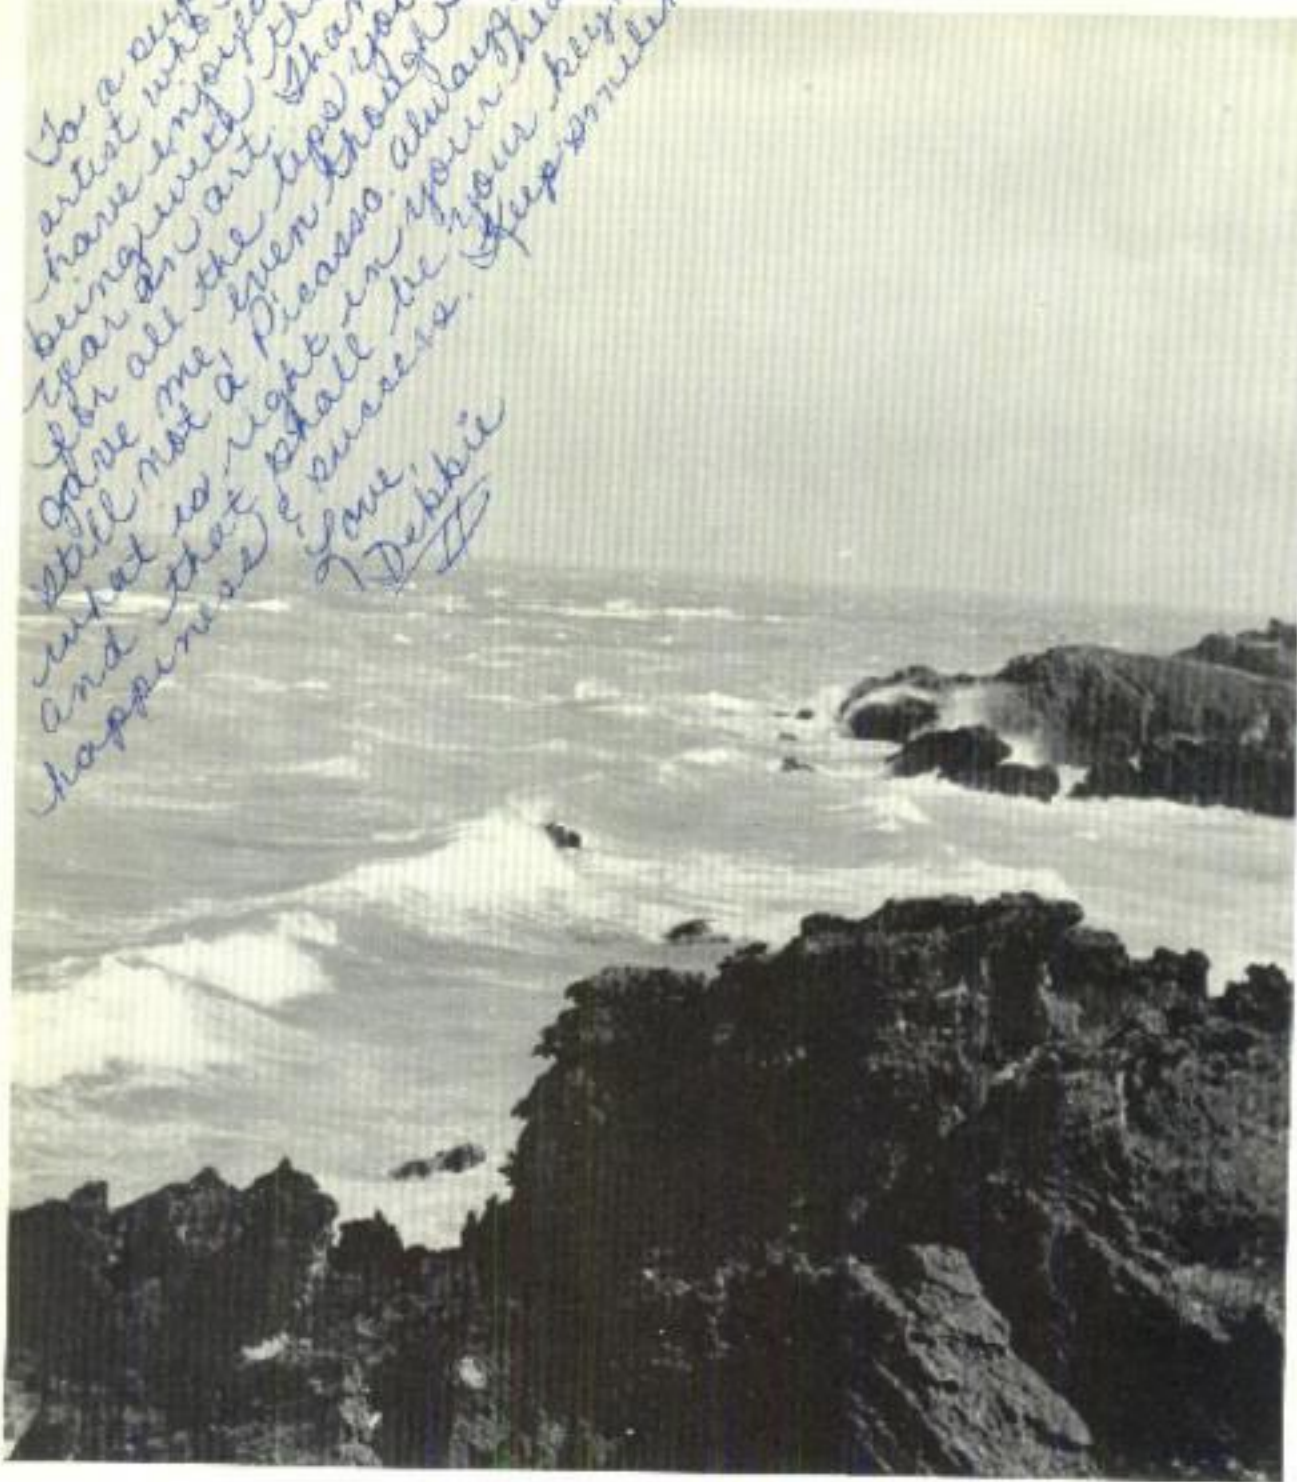 To a
artist who
have enjoyed
being with
year in art. Than
for all the tips you
gave me, even though
still not a Picasso. always
what is right in your
and that shall be your key
happiness & success. Keep
Love,
Debbie
II